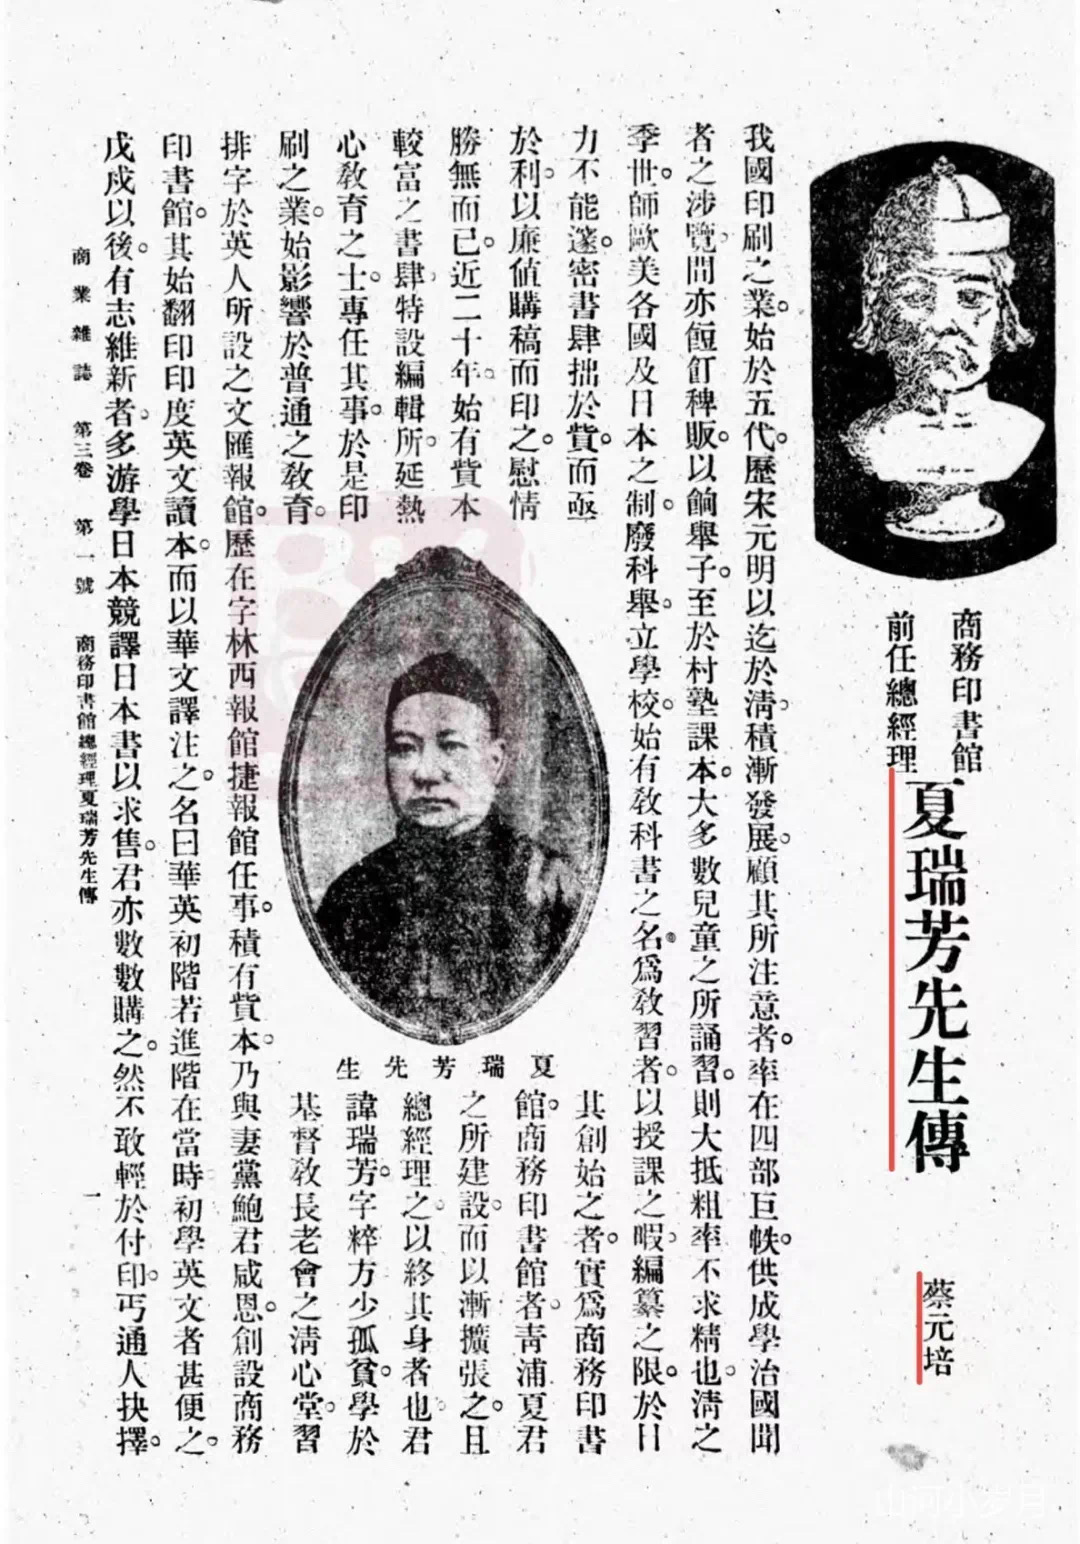 商務印書館
前任總經理
夏瑞芳先生傳
蔡元培
我國印刷之業。始於五代。歷宋元明以迄於淸。積漸發展。顧其所注意者。率在四部巨帙。供成學治國聞
者之涉覽。間亦餖飣稗販。以餉舉子。至於村塾課本。大多數兒童之所誦習。則大抵粗率不求精也。淸之
季世。師歐美各國及日本之制。廢科舉。立學校。始有敎科書之名。爲敎習者。以授課之暇。編纂之。限於日
力不能邃。密書肆拙於貲。而亟
於利。以廉値購稿而印之。慰情
勝無而已。近二十年。始有貲本
較富之書肆。特設編輯所。延熱
心敎育之士。專任其事。於是印
刷之業。始影響於普通之敎育。
夏瑞芳先生
其創始之者。實爲商務印書
館。商務印書館者。靑浦夏君
之所建設。而以漸擴張之。且
總經理之以終其身者也。君
諱瑞芳。字粹方少孤貧。學於
基督敎長老會之淸心堂。習
排字於英人所設之文匯報館。歷在字林西報館捷報館任事。積有貲本。乃與妻黨鮑君咸恩。創設商務
印書館。其始翻印印度英文讀本。而以華文譯注之。名曰華英初階若進階在當時初學英文者甚便之。
戊戌以後。有志維新者。多游學日本競譯日本書以求售。君亦數數購之。然不敢輕於付印。丐通人抉擇。
商業雜誌 第三卷 第一號 商務印書館總經理夏瑞芳先生傳
一
山河小岁月